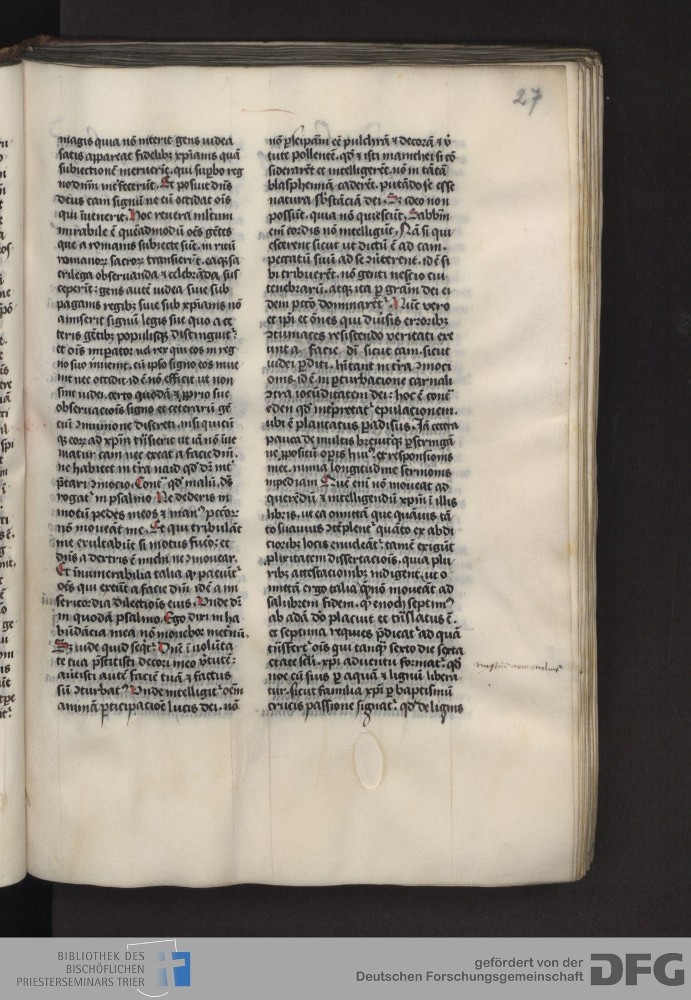 27
magis quia nō interit gens iudea
satis appareat fidelibꝫ xp̄ianis quā
subiectionē meruerīt, qui supbo reg
no dnm̄ interfecerūt. Et posuit dn̄s
deus cain signū ne eū occidat oīs
qui īuenerit. Hoc reuera ml̄tum
mirabile ē quēadmodū oēs gētes
que a romanis subiecte sūt. in ritū
romanoꝝ sacroꝝ transierūt. eaqꝫ sa
crilega obseruanda ⁊ celebrāda sus
ceperīt: gens autē iudea siue sub
paganis regibꝫ siue sub xp̄ianis nō
amiserit signū legis sue quo a ce
teris gētibꝫ populisqꝫ distinguit᷑:
et oīs imꝑator uel rex qui eos in reg
no suo inuenit. cū ipso signo eos inue
nit nec occidit. id ē nō efficit ut non
sint iudei. certo quodā ⁊ ꝓprio sue
obseruaciōis signo et ceteraꝝ gē
ciū ꝯmunione discreti. nisi quicū
qꝫ eoꝝ ad xp̄m trāsierit ut iā nō īue
niatur cain nec exeat a facie dn̄i.
ne habitet in tr̄a naid qd' dr̄ int᷑
p̄tari ꝯmocio. Cont᷑ qd' malū. ds̄
rogat᷑ in psalmo. Ne dederis in
motū pedes meos ⁊ man᷒ pctōꝝ
nō moueāt me. Et qui tribulāt
me exultabūt si motus fuero: et
dn̄s a dextris ē michi ne ꝯmouear.
Et īnumerabilia talia qꝛ paciūt᷑
oēs qui exeūt a facie dn̄i id ē a mi
sericordia dilectiōis eius. Vnde dr̄
in quodā psalmo. Ego dixi in ha
būdācia mea nō mouebor ī eternū.
Sꝫ uide quid seqt᷑. Dn̄e ī uolūta
te tua p̄stitisti decori meo ꝟtutē:
auisti autē faciē tuā ⁊ factus
sū ꝯturbat᷒. Vnde intelligit᷑ oēm
animā ꝑticipacione lucis dei. nō
nō ꝑ seip̄am ēē pulchrā ⁊ decorā ⁊ ꝟ
tute pollentē. qd' ⁊ isti manichei si cō
siderarēt et intelligerēt. nō in tātā
blasphemiā caderēt. putādo se esse
natura sb̄stācia dei. Sꝫ ideo non
possūt. quia nō quiescūt. Sabbm̄
eni cordis nō intelligūt. Nā si qui
escerent sicut ut dictū ē ad cain.
peccatū suū ad se ꝯuterent. id ē si
bi tribuerēt. nō genti nescio cui
tenebraꝝ. atqꝫ ita ꝑ gr̄am dei ei
dem pctō dominarēt᷑. Nūc vero
et ip̄i et ōnes qui diuisis erroribꝫ
ꝯtumaces resistendo veritati exe
unt a facie dn̄i sicut cain. sicut
iudei ꝑditi. hītant in tr̄a ꝯmoci
onis. id ē in ꝑturbacione carnali
ꝯtra iocūditatem dei: hoc ē cont᷑
eden qd' int̄pretat᷑ epulacionem.
ubi ē plantatus padisus. Iā cetera
pauca de multis breuit᷑qꝫ ꝑstringā
ne, positū opis hui᷒, et responsionis
mee. nimia longitudine sermonis
impediam. Que eni nō moueāt ad
querēdū ⁊ intelligendū xp̄m ī illis
libris. ut ea omittā que quāuis tā
to suauius ꝯtēplent᷑ quāto ex abdi
cioribꝫ locis enudeāt᷑. tamē exigūt
ꝓlixitatem dissertaciōis. quia plu
ribꝫ attestacionibꝫ indigent. ut o
mittā ergo talia
ab adā dō placuit et trāslatus ē.
et septima requies p̄dicat᷑ ad quā
trāsfert᷑ oīs qui tanqꝫ serto die sexta
etate seli. xp̄i aduentu format᷑. qd'
noe cū suis ꝑ aquā ⁊ lignū libera
tur. sicut familia xp̄i ꝑ baptismū
crucis passione signat᷑. qd' de lignis
BIBLIOTHEK DES
BISCHÖFLICHEN
PRIESTERSEMINARS TRIER
gefördert von der
Deutschen Forschungsgemeinschaft
DFG